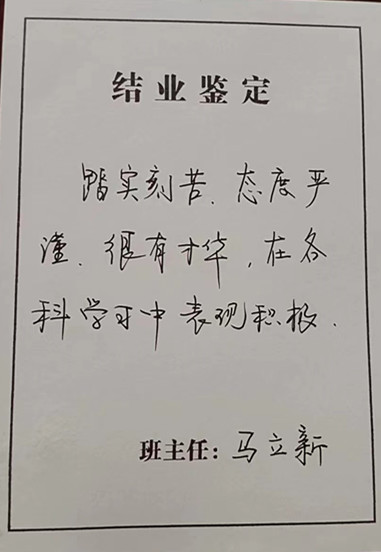 结业鉴定
踏实刻苦、态度严
谨、很有才华，在各
科学习中表现积极.
班主任：马立新